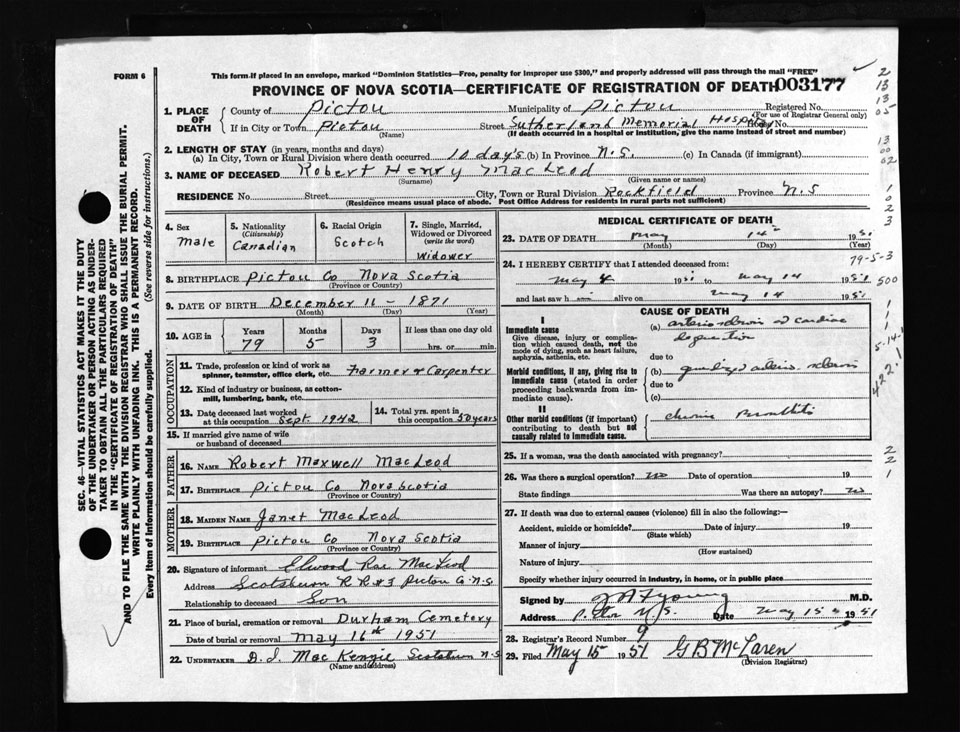 FORM 6
This form if placed in an envelope, marked "Dominion Statistics—Free, penalty for improper use $300," and properly addressed will pass through the mail "FREE"
PROVINCE OF NOVA SCOTIA—CERTIFICATE OF REGISTRATION OF DEATH 003177
1. PLACE OF DEATH
County of Pictou Municipality of Pictou Registered No.
(For use of Registrar General only)
If in City or Town Pictou Street Sutherland Memorial Hospital House No.
(Name) (If death occurred in a hospital or institution, give the name instead of street and number)
2. LENGTH OF STAY (in years, months and days)
(a) In City, Town or Rural Division where death occurred 10 days (b) In Province N.S. (c) In Canada (if immigrant)
3. NAME OF DECEASED Robert Henry MacLeod
(Surname) (Given name or names)
RESIDENCE No. Street City, Town or Rural Division Rockfield Province N.S
(Residence means usual place of abode. Post Office Address for residents in rural parts not sufficient)
4. Sex
Male
5. Nationality
(Citizenship)
Canadian
6. Racial Origin
Scotch
7. Single, Married, Widowed or Divorced
(write the word)
Widower
8. BIRTHPLACE Pictou Co Nova Scotia
(Province or Country)
9. DATE OF BIRTH December 11 - 1871
(Month) (Day) (Year)
10. AGE in
Years Months Days If less than one day old
79 5 3 hrs. or min.
OCCUPATION
11. Trade, profession or kind of work as spinner, teamster, office clerk, etc. Farmer & Carpenter
12. Kind of industry or business, as cotton-mill, lumbering, bank, etc.
13. Date deceased last worked at this occupation Sept. 1942
14. Total yrs. spent in this occupation 50 years
15. If married give name of wife or husband of deceased
FATHER
16. NAME Robert Maxwell MacLeod
17. BIRTHPLACE Pictou Co Nova Scotia
(Province or Country)
MOTHER
18. MAIDEN NAME Janet MacLeod
19. BIRTHPLACE Pictou Co Nova Scotia
(Province or Country)
20. Signature of informant Elwood Rae MacLeod
Address Scotsburn R R #3 Pictou Co N.S.
Relationship to deceased Son
21. Place of burial, cremation or removal Durham Cemetery
Date of burial or removal May 16th 1951
22. UNDERTAKER D. J. MacKenzie Scotsburn N.S
(Name and address)
MEDICAL CERTIFICATE OF DEATH
23. DATE OF DEATH May 14 1951
(Month) (Day) (Year)
79-5-3
24. I HEREBY CERTIFY that I attended deceased from:
May 4 1951 to May 14 1951
and last saw h alive on May 14 1951
CAUSE OF DEATH
I
Immediate cause
Give disease, injury or complication which caused death, not the mode of dying, such as heart failure, asphyxia, asthenia, etc.
(a)
due to
Morbid conditions, if any, giving rise to immediate cause (stated in order proceeding backwards from immediate cause).
(b)
due to
(c)
II
Other morbid conditions (if important) contributing to death but not causally related to immediate cause.
chronic Bronchitis
25. If a woman, was the death associated with pregnancy?
26. Was there a surgical operation? no Date of operation 19
State findings Was there an autopsy? no
27. If death was due to external causes (violence) fill in also the following:—
Accident, suicide or homicide? Date of injury 19
(State which)
Manner of injury
(How sustained)
Nature of injury
Specify whether injury occurred in industry, in home, or in public place
Signed by Young M.D.
Address Pictou N.S. Date May 15 1951
28. Registrar's Record Number 9
29. Filed May 15 1951 G B McLaren
(Division Registrar)
SEC. 46—VITAL STATISTICS ACT MAKES IT THE DUTY
OF THE UNDERTAKER OR PERSON ACTING AS UNDER-
TAKER TO OBTAIN ALL THE PARTICULARS REQUIRED
IN THE "CERTIFICATE OF REGISTRATION OF DEATH"
AND TO FILE THE SAME WITH THE DIVISION REGISTRAR WHO SHALL ISSUE THE BURIAL PERMIT.
WRITE PLAINLY WITH UNFADING INK. THIS IS A PERMANENT RECORD.
Every item of information should be carefully supplied. (See reverse side for instructions.)
2
13
13
05
13
00
02
1
0
2
3
500
1
1
1
5-14-
422.1
2
2
1